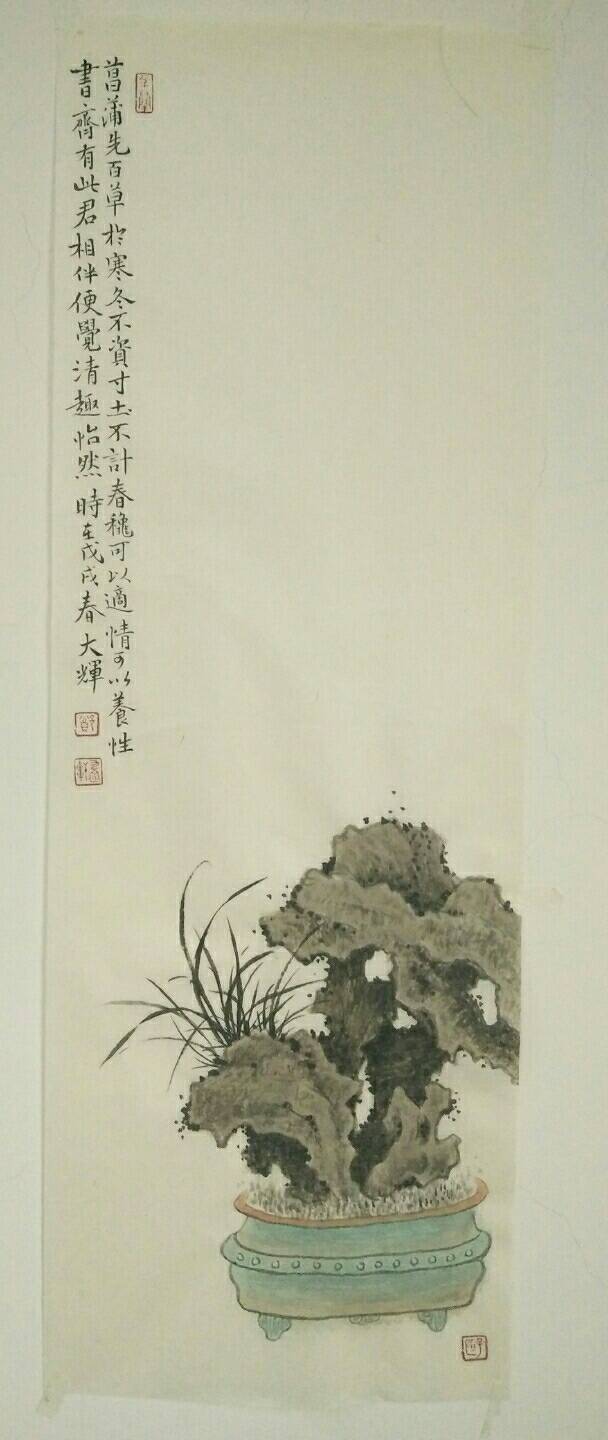 菖蒲先百草於寒冬不資寸土不計春穐可以適情可以養性
書齋有此君相伴便覺清趣怡然時在戊戌春大輝